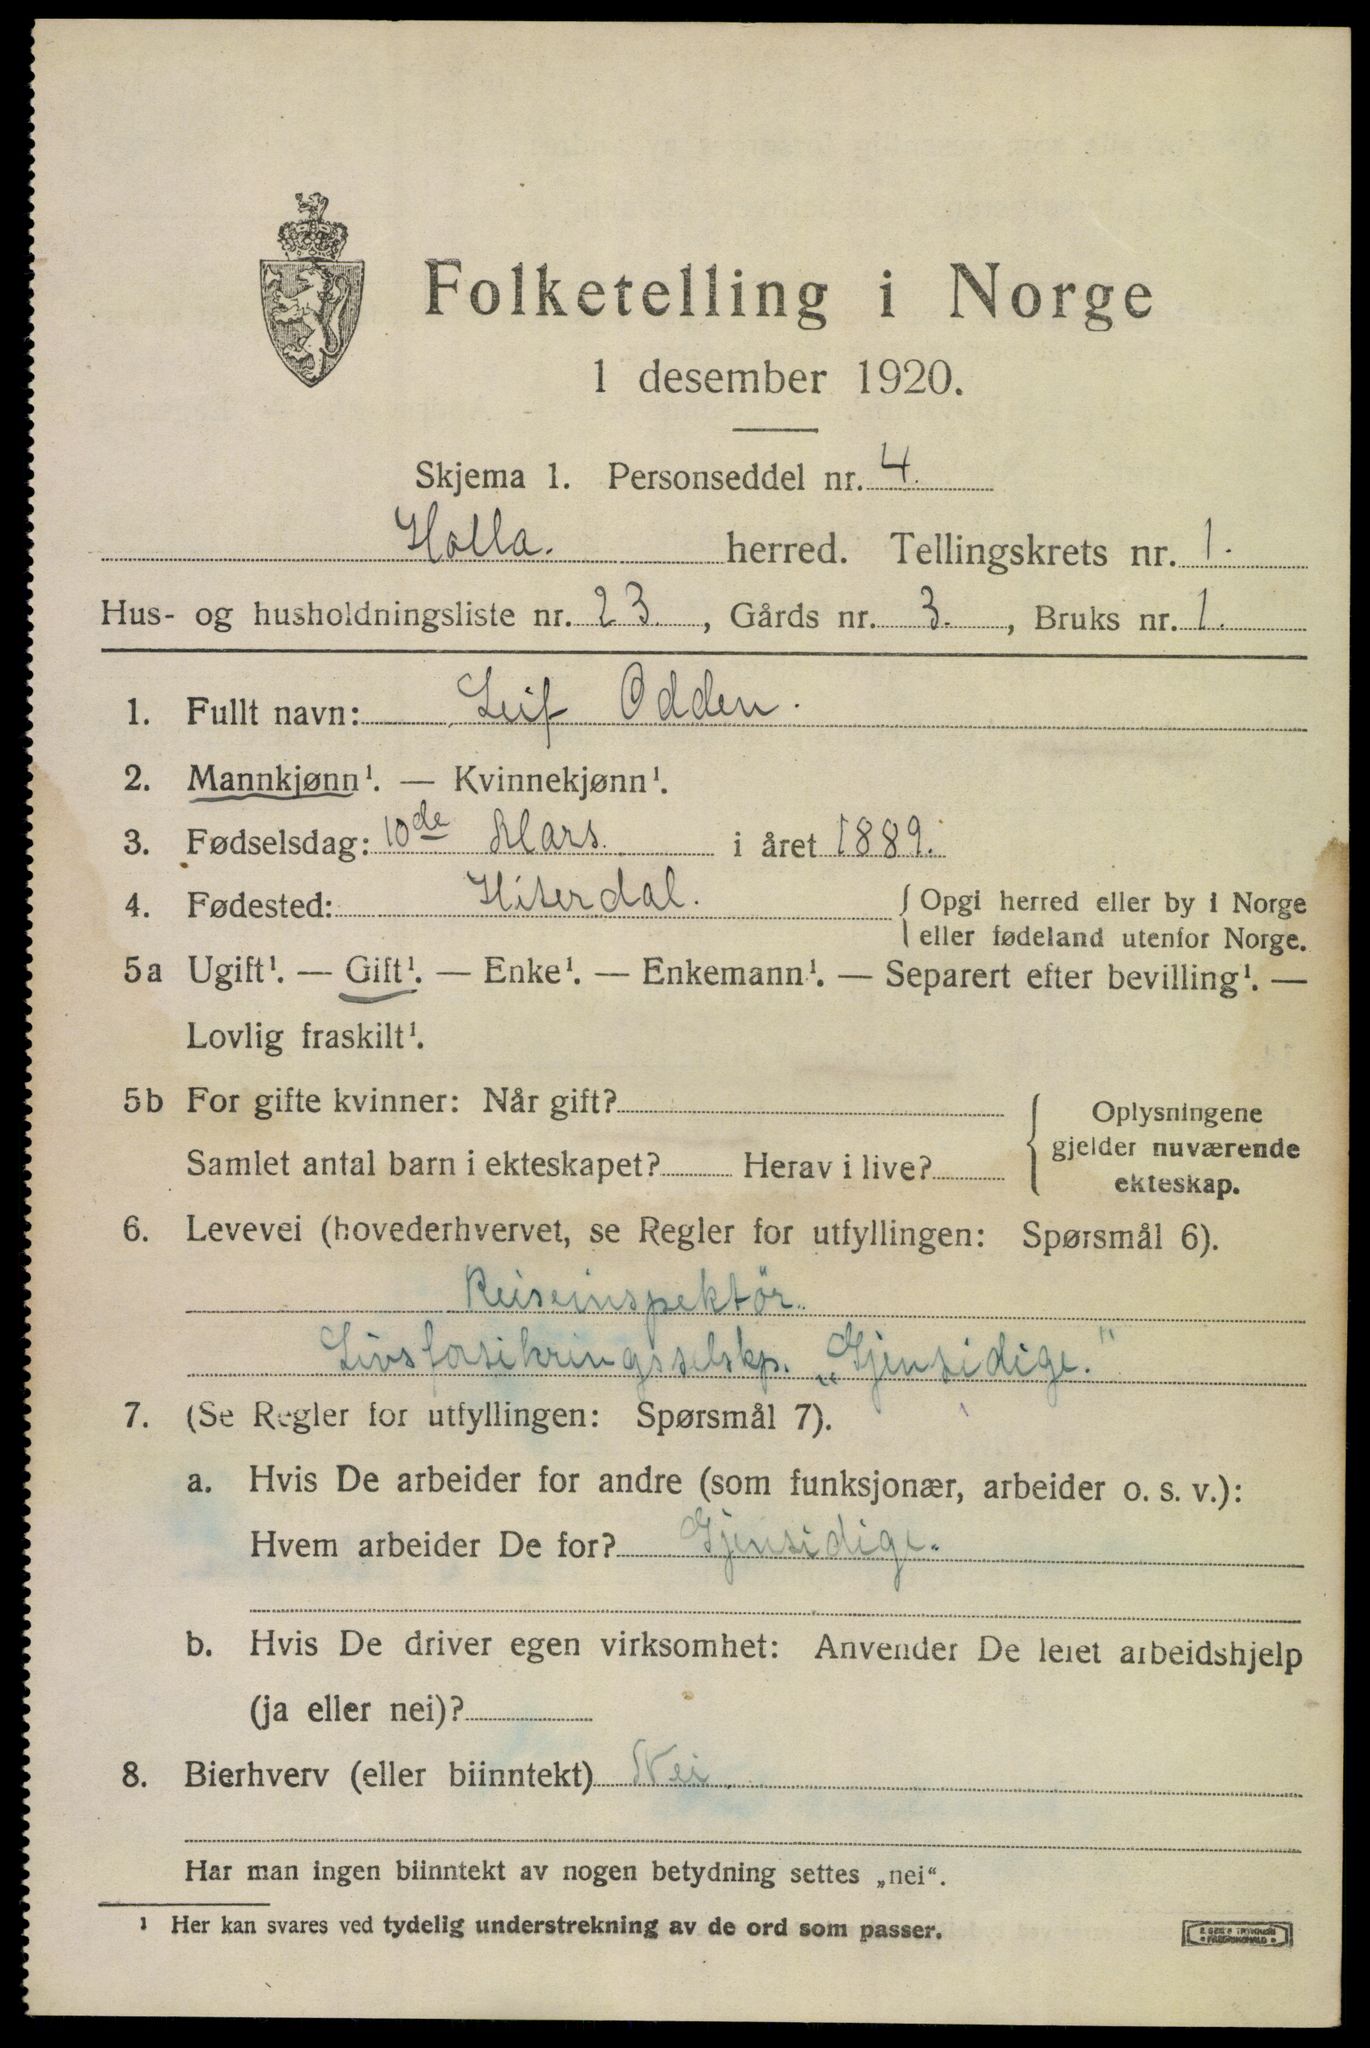 Folketelling i Norge
1 desember 1920.
Skjema 1. Personseddel nr. 4.
Holla. herred. Tellingskrets nr. 1.
Hus- og husholdningsliste nr. 23., Gårds nr. 3., Bruks nr. 1.
1. Fullt navn: Leif Odden.
2. Mannkjønn¹. — Kvinnekjønn¹.
3. Fødselsdag: 10de Mars. i året 1889.
4. Fødested: Hiterdal. { Opgi herred eller by i Norge
eller fødeland utenfor Norge.
5a Ugift¹. — Gift¹. — Enke¹. — Enkemann¹. — Separert efter bevilling¹. —
Lovlig fraskilt¹.
5b For gifte kvinner: Når gift?
Samlet antal barn i ekteskapet? Herav i live?
{ Oplysningene
gjelder nuværende
ekteskap.
6. Levevei (hovederhvervet, se Regler for utfyllingen: Spørsmål 6).
Reiseinspektör.
Livsforsikringsselskp. „Gjensidige."
7. (Se Regler for utfyllingen: Spørsmål 7).
a. Hvis De arbeider for andre (som funksjonær, arbeider o. s. v.):
Hvem arbeider De for? Gjensidige.
b. Hvis De driver egen virksomhet: Anvender De leiet arbeidshjelp
(ja eller nei)?
8. Bierhverv (eller biinntekt) Nei.
Har man ingen biinntekt av nogen betydning settes „nei“.
¹ Her kan svares ved tydelig understrekning av de ord som passer.